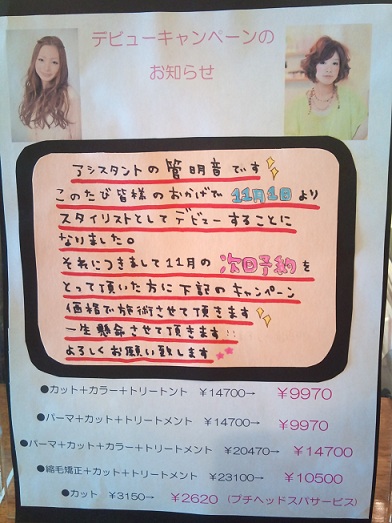 デビューキャンペーンの
お知らせ
アシスタントの管明音です
このたび皆様のおかげで11月1日より
スタイリストとしてデビューすることに
なりました。
それにつきまして11月の次回予約を
とって頂いた方に下記のキャンペーン
価格で施術させて頂きます
一生懸命させて頂きます!!
よろしくお願い致します
●カット＋カラー＋トリートント ￥14700→ ￥9970
●パーマ＋カット＋トリートメント ￥14700→ ￥9970
●パーマ＋カット＋カラー＋トリートメント ￥20470→ ￥14700
●縮毛矯正＋カット＋トリートメント ￥23100→ ￥10500
●カット ￥3150→ ￥2620 (プチヘッドスパサービス)